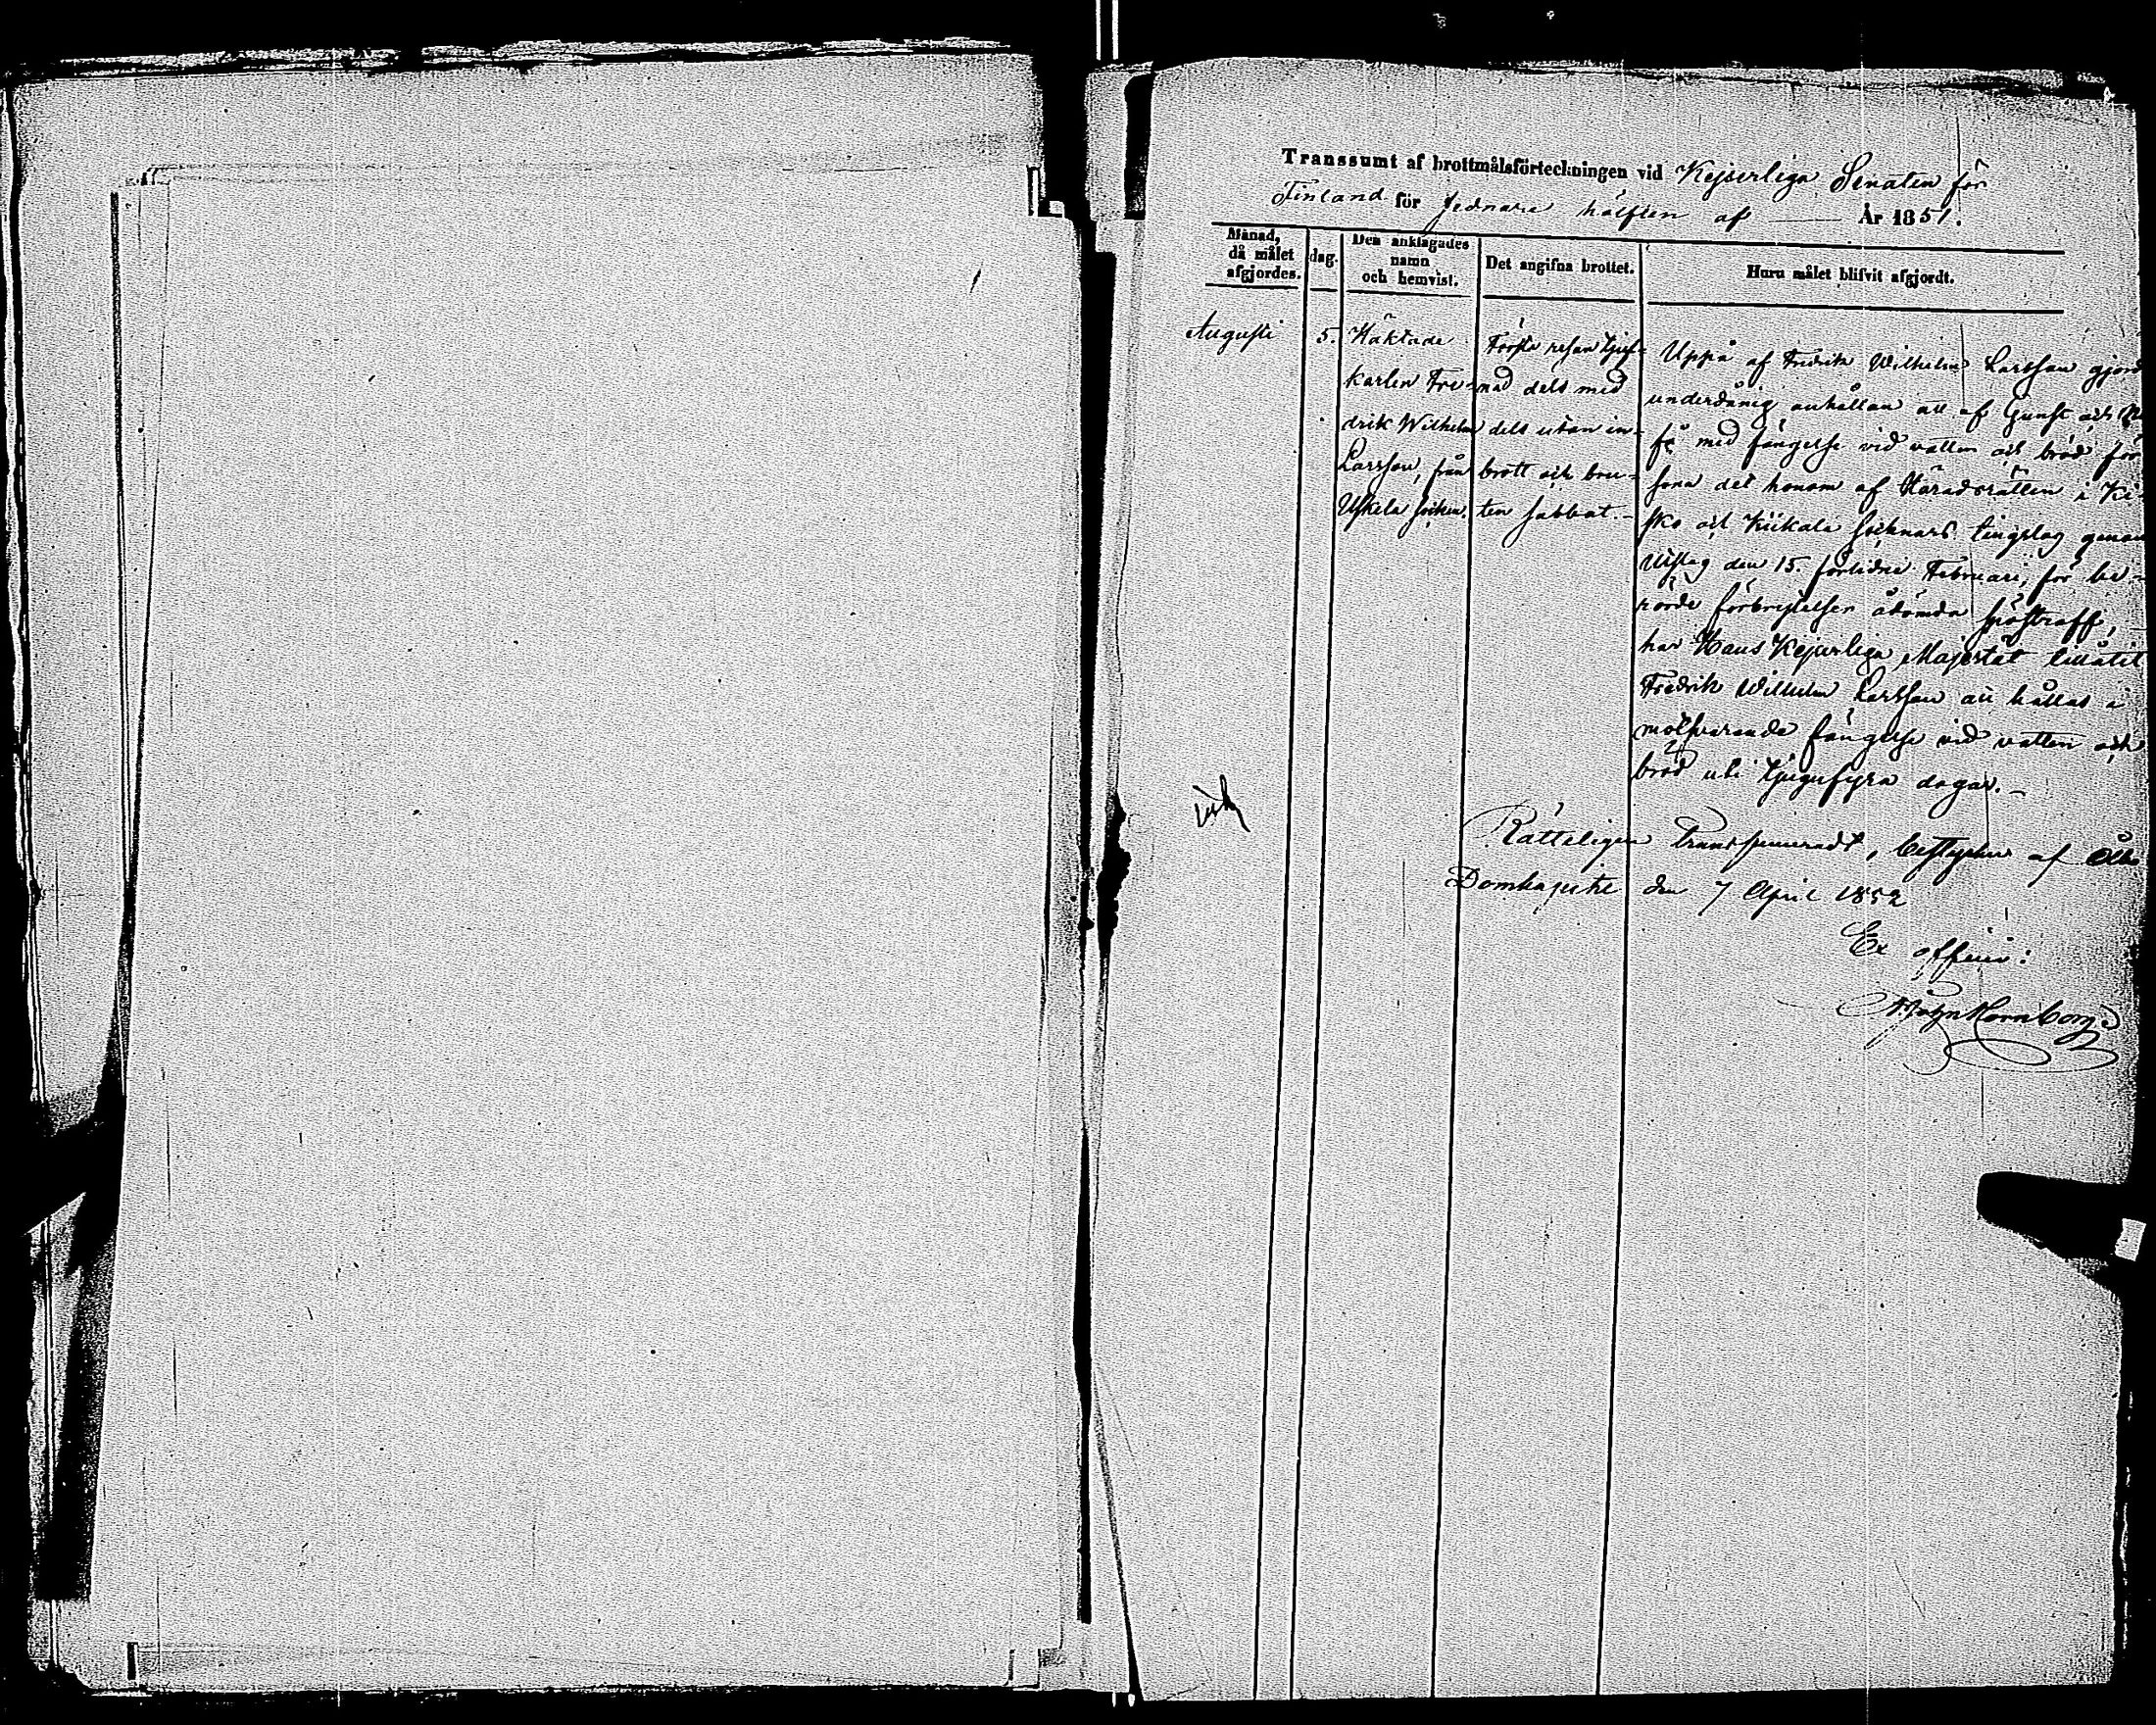 Transsumt af brottmålsförteckningen vid Kejserliga Senaten för
Finland för sednare hälften af År 1851.
Månad, då målet afgjordes.
dag.
Den anklagades namn och hemvist.
Det angifna brottet.
Huru målet blifvit afgjordt.
Augusti
5.
Häktade
karlen Fre-
drik Wilhelm
Larsson, från
Uskela socken.
Första resan tjuf-
nad dels med
dels utan in-
brott och bru-
ten sabbat.-
Uppå af Fredrik Wilhelm Larsson gjord
underdånig anhållan att af Gunst och
få med fängelse vid vatten och bröd för-
sona det honom af Häradsrätten i Ki-
sko och Kiikala socknars tingslag genom
Utslag den 15. förlidne Februari, för be-
rörde förbrytelser ådömda spöstraff, -
har Hans Kejserliga Majestät tillåtit
Fredrik Wilhelm Larsson att hållas i
motsvarande fängelse vid vatten och
bröd uti tjugufyra dagar.-
Rätteligen transsumeradt, betygar af Åbo
Domkapitel den 7 April 1852
Ex officio:
Hornborg